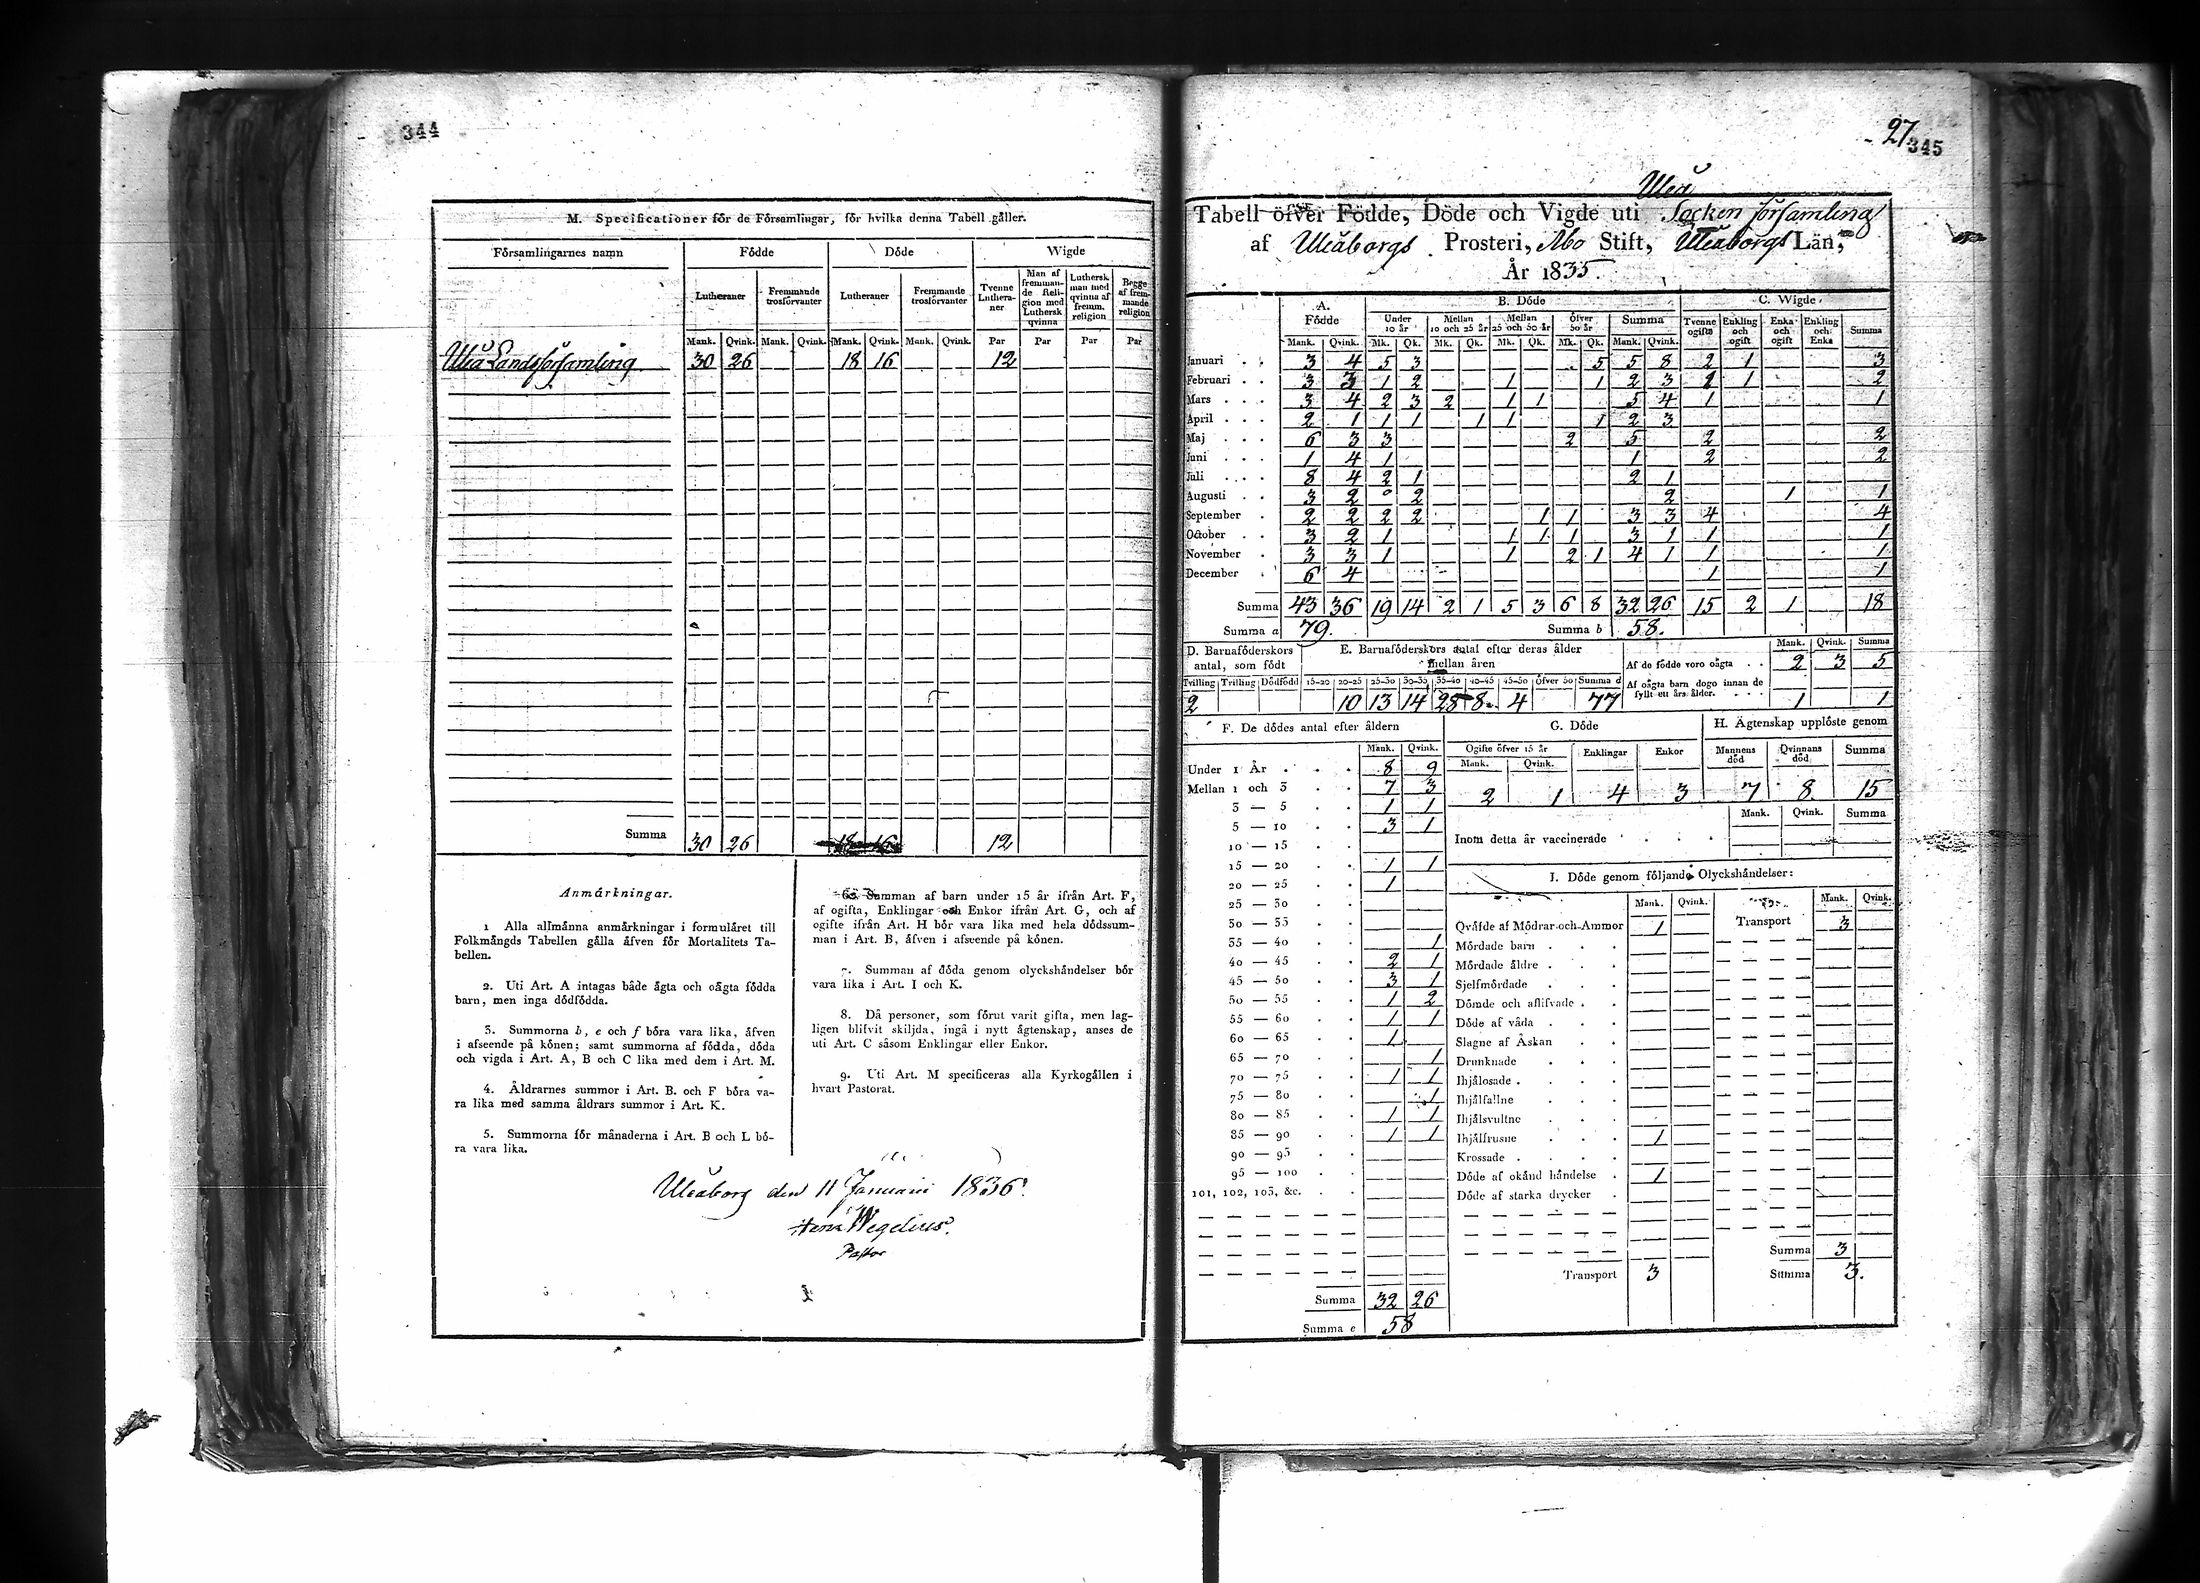 344
M. Specificationer för de Församlingar, för hvilka denna Tabell gäller.
Församlingarnes namn Födde Döde Wigde
Lutheraner Fremmande trosförvanter Lutheraner Fremmande trosförvanter Tvenne Luthera-ner Man af fremman-de Reli-gion med Luthersk qvinna Luthersk man med qvinna af fremm. religion Begge af frem-mande religion
Mank. Qvink. Mank. Qvink. Mank. Qvink. Mank. Qvink. Par Par Par Par
Uleå Landsförsamling 30 26 18 16 12
Summa 30 26 18 16 12
Anmärkningar.
1 Alla allmänna anmärkningar i formuläret till
Folkmängds Tabellen gälla äfven för Mortalitets Ta-
bellen.
2. Uti Art. A intagas både ägta och oägta födda
barn, men inga dödfödda.
3. Summorna b, e och f böra vara lika, äfven
i afseende på könen; samt summorna af födda, döda
och vigda i Art. A, B och C lika med dem i Art. M.
4. Åldrarnes summor i Art. B. och F böra va-
ra lika med samma åldrars summor i Art. K.
5. Summorna för månaderna i Art. B och L bö-
ra vara lika.
6. Summan af barn under 15 år ifrån Art. F,
af ogifta, Enklingar och Enkor ifrån Art. G, och af
ogifte ifrån Art. H bör vara lika med hela dödssum-
man i Art. B, äfven i afseende på könen.
7. Summan af döda genom olyckshändelser bör
vara lika i Art. I och K.
8. Då personer, som förut varit gifta, men lag-
ligen blifvit skiljda, ingå i nytt ägtenskap, anses de
uti Art. C såsom Enklingar eller Enkor.
9. Uti Art. M specificeras alla Kyrkogällen i
hvart Pastorat.
Uleåborg den 11 Januarii 1836.
Wegelius.
Pastor
27
345
Uleå
Tabell öfver Födde, Döde och Vigde uti Socken församling
af Uleåborgs Prosteri, Åbo Stift, Uleåborgs Län,
År 1835.
A. Födde B. Döde C. Wigde
Under 10 år Mellan 10 och 25 år Mellan 25 och 50 år Öfver 50 år Summa Tvenne ogifte Enkling och ogift Enka och ogift Enkling och Enka Summa
Mank. Qvink. Mk. Qk. Mk. Qk. Mk. Qk. Mk. Qk. Mank. Qvink.
Januari 3 4 5 3 5 5 8 2 1 3
Februari 3 3 1 2 1 1 2 3 1 2
Mars 3 4 2 3 2 1 1 5 4 1 1
April 2 1 1 1 1 1 1 2 3
Maj 6 3 3 2 5 2 2
Juni 1 4 1 1 2 2
Juli 8 4 2 1 2 1
Augusti 3 2 0 2 2 1 1
September 2 2 2 2 1 1 3 3 4 4
October 3 2 1 1 1 1 3 1 1 1
November 3 3 1 1 2 1 4 1 1 1
December 6 4 1 1
Summa 43 36 19 14 2 1 5 3 6 8 32 26 15 2 1 18
Summa a 79. Summa b 58.
D. Barnaföderskors antal, som födt
Tvilling Trilling Dödfödd
2
E. Barnaföderskors antal efter deras ålder mellan åren
15-20 20-25 25-30 30-35 35-40 40-45 45-50 Öfver 50 Summa d
10 13 14 28 8 4 77
Mank. Qvink. Summa
Af de födde voro oägta 2 3 5
Af oägta barn dogo innan de
fyllt ett års ålder. 1 1
F. De dödes antal efter åldern
Mank. Qvink.
Under 1 År 8 9
Mellan 1 och 3 7 3
3 — 5 1 1
5 — 10 3 1
10 — 15
15 — 20 1 1
20 — 25 1
25 — 30
30 — 35
35 — 40 1
40 — 45 2 1
45 — 50 3 1
50 — 55 1 2
55 — 60 1 1
60 — 65 1
65 — 70 1
70 — 75 1 1
75 — 80 1
80 — 85 1 1
85 — 90 1 1
90 — 95
95 — 100
101, 102, 103, &c.
Summa 32 26
Summa e 58
G. Döde
Ogifte öfver 15 år Enklingar Enkor
Mank. Qvink.
2 1 4 3
H. Ägtenskap upplöste genom
Mannens död Qvinnans död Summa
7 8 15
Mank. Qvink. Summa
Inom detta år vaccinerade
I. Döde genom följande Olyckshändelser:
Mank. Qvink. Mank. Qvink.
Qväfde af Mödrar och Ammor 1 Transport 3
Mördade barn
Mördade äldre
Sjelfmördade
Dömde och aflifvade
Döde af våda
Slagne af Åskan
Drunknade
Ihjälosade
Ihjälfallne
Ihjälsvultne
Ihjälfrusne 1
Krossade
Döde af okänd händelse 1
Döde af starka drycker
Summa 3
Transport 3 Summa 3.